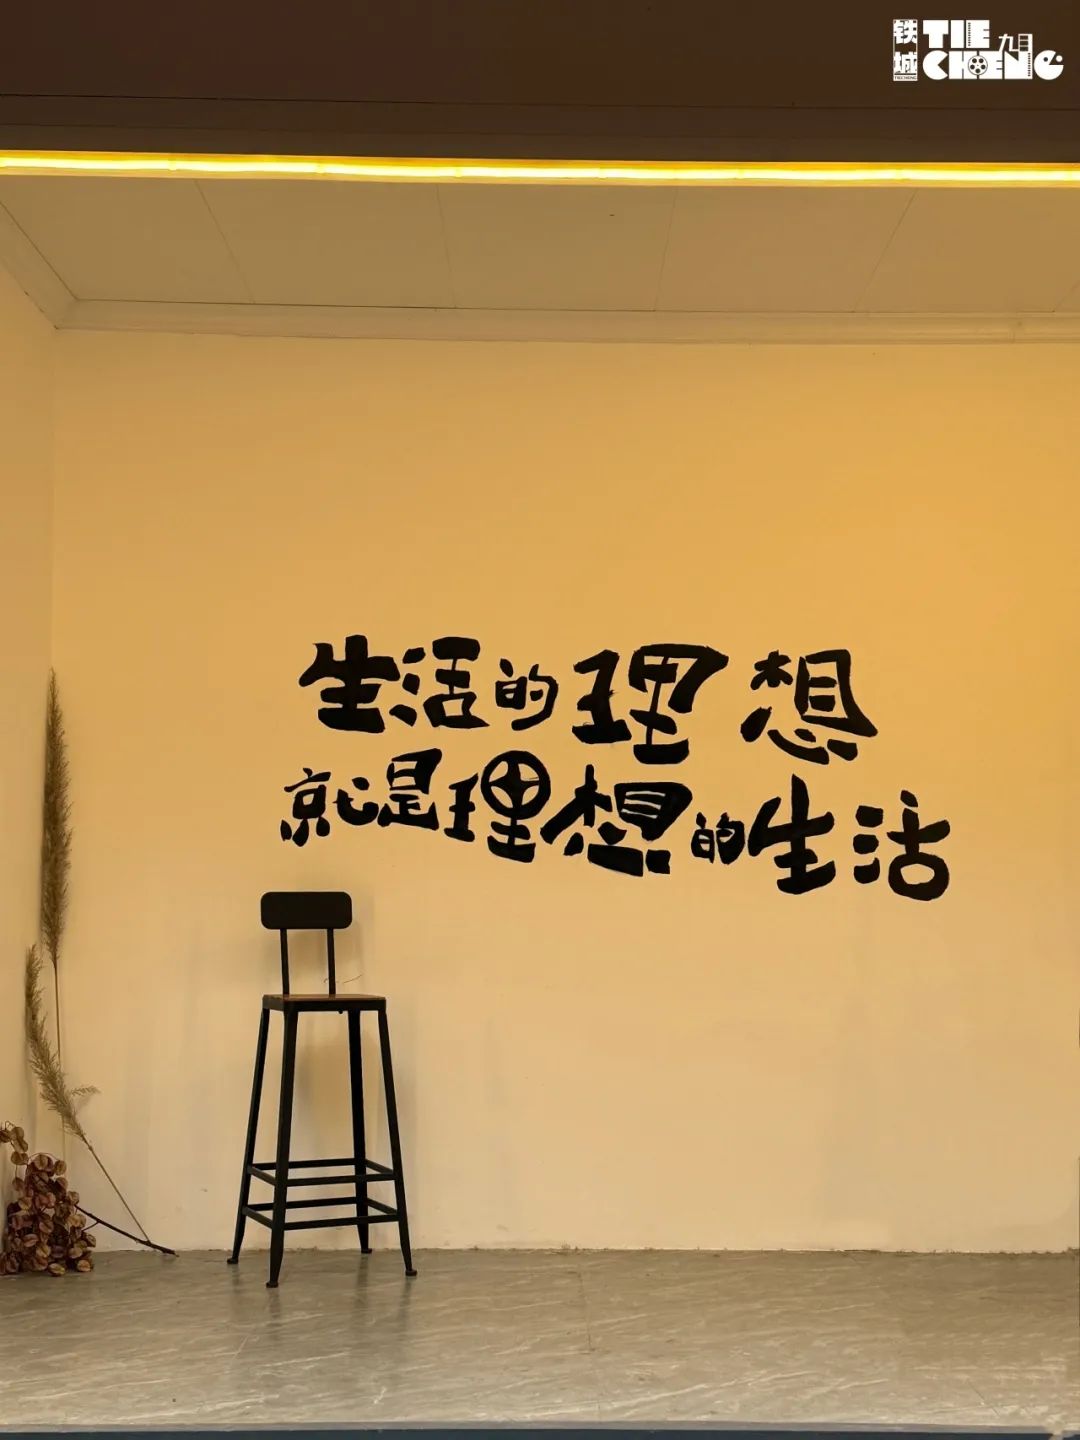 铁城
TIE 九月
CHENG
TIECHENG
生活的理想
就是理想的生活